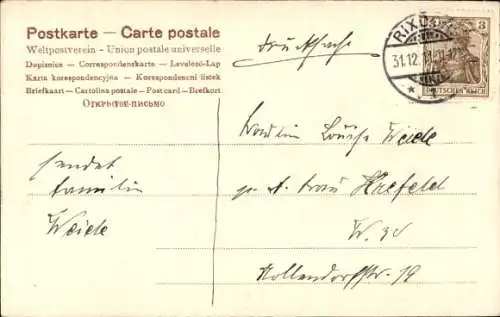 Postkarte — Carte postale
Weltpostverein - Union postale universelle
Dopisnice — Correspondenzkarte — Levelező-Lap
Karta korespondencyjna — Korespondenční lístek
Briefkaart — Cartolina postale — Post card — Brefkort
ОТКРЫТОЕ-ПИСЬМО
Drucksache
3
RIXD
31.12.
DEUTSCHES REICH
Louise Weide
p. A. Frau
W. 30
Nollendorfstr. 19
sendet
Familie
Weide